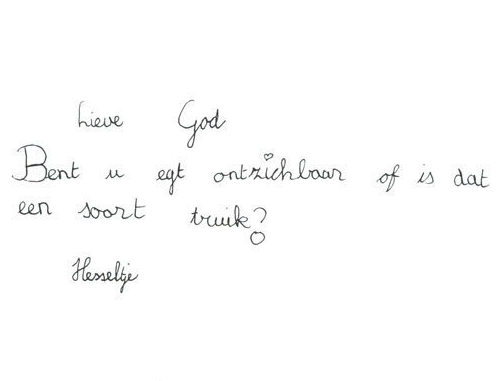 Lieve God
Bent u egt ontzichbaar of is dat
een soort truik?
Hesseltje